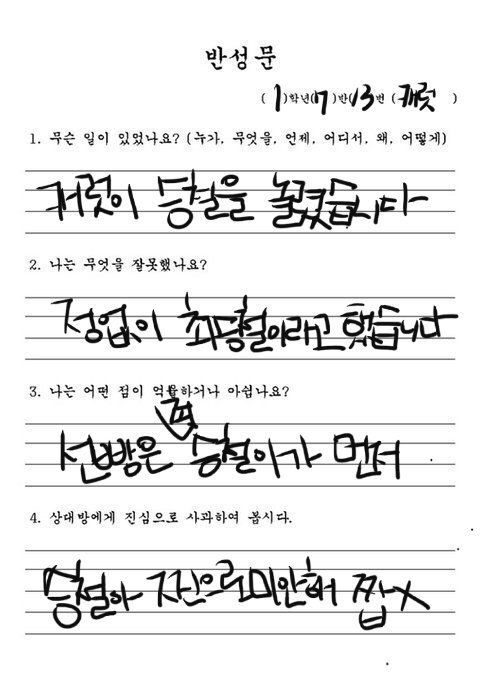 반성문
( 1 )학년( 17 )반( 13번 ( 캐럿 )
1. 무슨 일이 있었나요? (누가, 무엇을, 언제, 어디서, 왜, 어떻게)
캐럿이 승철을 놀렸습니다
2. 나는 무엇을 잘못했나요?
정없이 최승철이라고 했습니다
3. 나는 어떤 점이 억울하거나 아쉽나요?
선빵은 승철이가 먼저
4. 상대방에게 진심으로 사과하여 봅시다.
승철아 진심으로 미안해